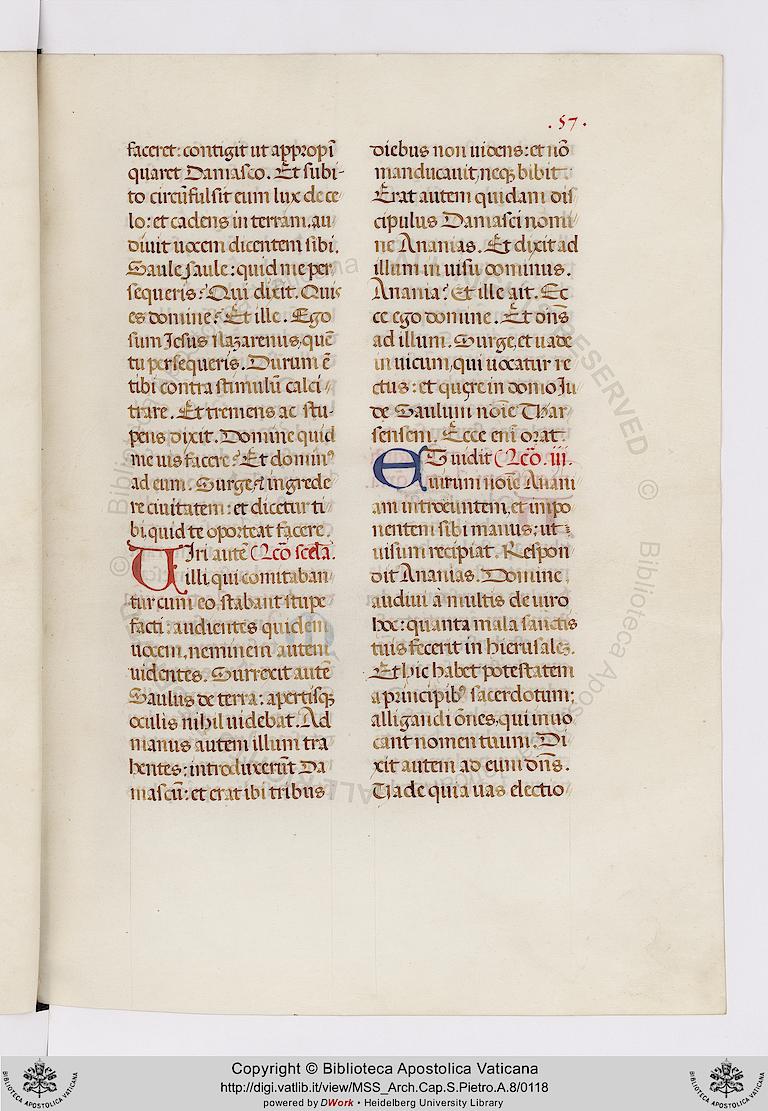 .57.
faceret: contigit ut appropĩ
quaret Damasco. Et subi-
to circũfulsit eum lux de ce
lo: et cadens in terram, au
diuit uocem dicentem sibi.
Saule saule: quid me per
sequeris? Qui dixit. Quis
es domine? Et ille. Ego
sum Jesus Nazarenus, quẽ
tu persequeris. Durum ẽ
tibi contra stimulũ calci-
trare. Et tremens ac stu-
pens dixit. Domine quid
me uis facere? Et dominꝰ
ad eum. Surge ⁊ ingrede
re ciuitatem: et dicetur ti
bi, quid te oporteat facere.
UIri autẽ Lc̃o scd̃a.
illi qui comitaban
tur cum eo, stabant stupe
facti: audientes quidem
uocem, neminem autem
uidentes. Surrexit autẽ
Saulus de terra: apertisqꝫ
oculis nihil uidebat. Ad
manus autem illum tra
hentes: introduxerũt Da
mascũ: et erat ibi tribus
diebus non uidens: et nõ
manducauit, neqꝫ bibit.
Erat autem quidam dis
cipulus Damasci nomi
ne Ananias. Et dixit ad
illum in uisu dominus.
Anania? Et ille ait. Ec
ce ego domine. Et dñs
ad illum. Surge, et uade
in uicum, qui uocatur re
ctus: et quęre in domo Ju
de Saulum noĩe Thar
sensem. Ecce enĩ orat.
ET uidit Lc̃o. iii.
uirum noĩe Anani
am introeuntem, et impo
nentem sibi manus: ut
uisum recipiat. Respon
dit Ananias. Domine,
audiui à multis de uiro
hoc: quanta mala sanctis
tuis fecerit in hierusaleꝫ.
Et hic habet potestatem
a principibꝰ sacerdotum:
alligandi oẽs, qui inuo
cant nomen tuum. Di
xit autem ad eum dñs.
Uade quia uas electio
Copyright © Biblioteca Apostolica Vaticana
http://digi.vatlib.it/view/MSS_Arch.Cap.S.Pietro.A.8/0118
powered by DWork • Heidelberg University Library
BIBLIOTECA APOSTOLICA VATICANA
BIBLIOTECA APOSTOLICA VATICANA